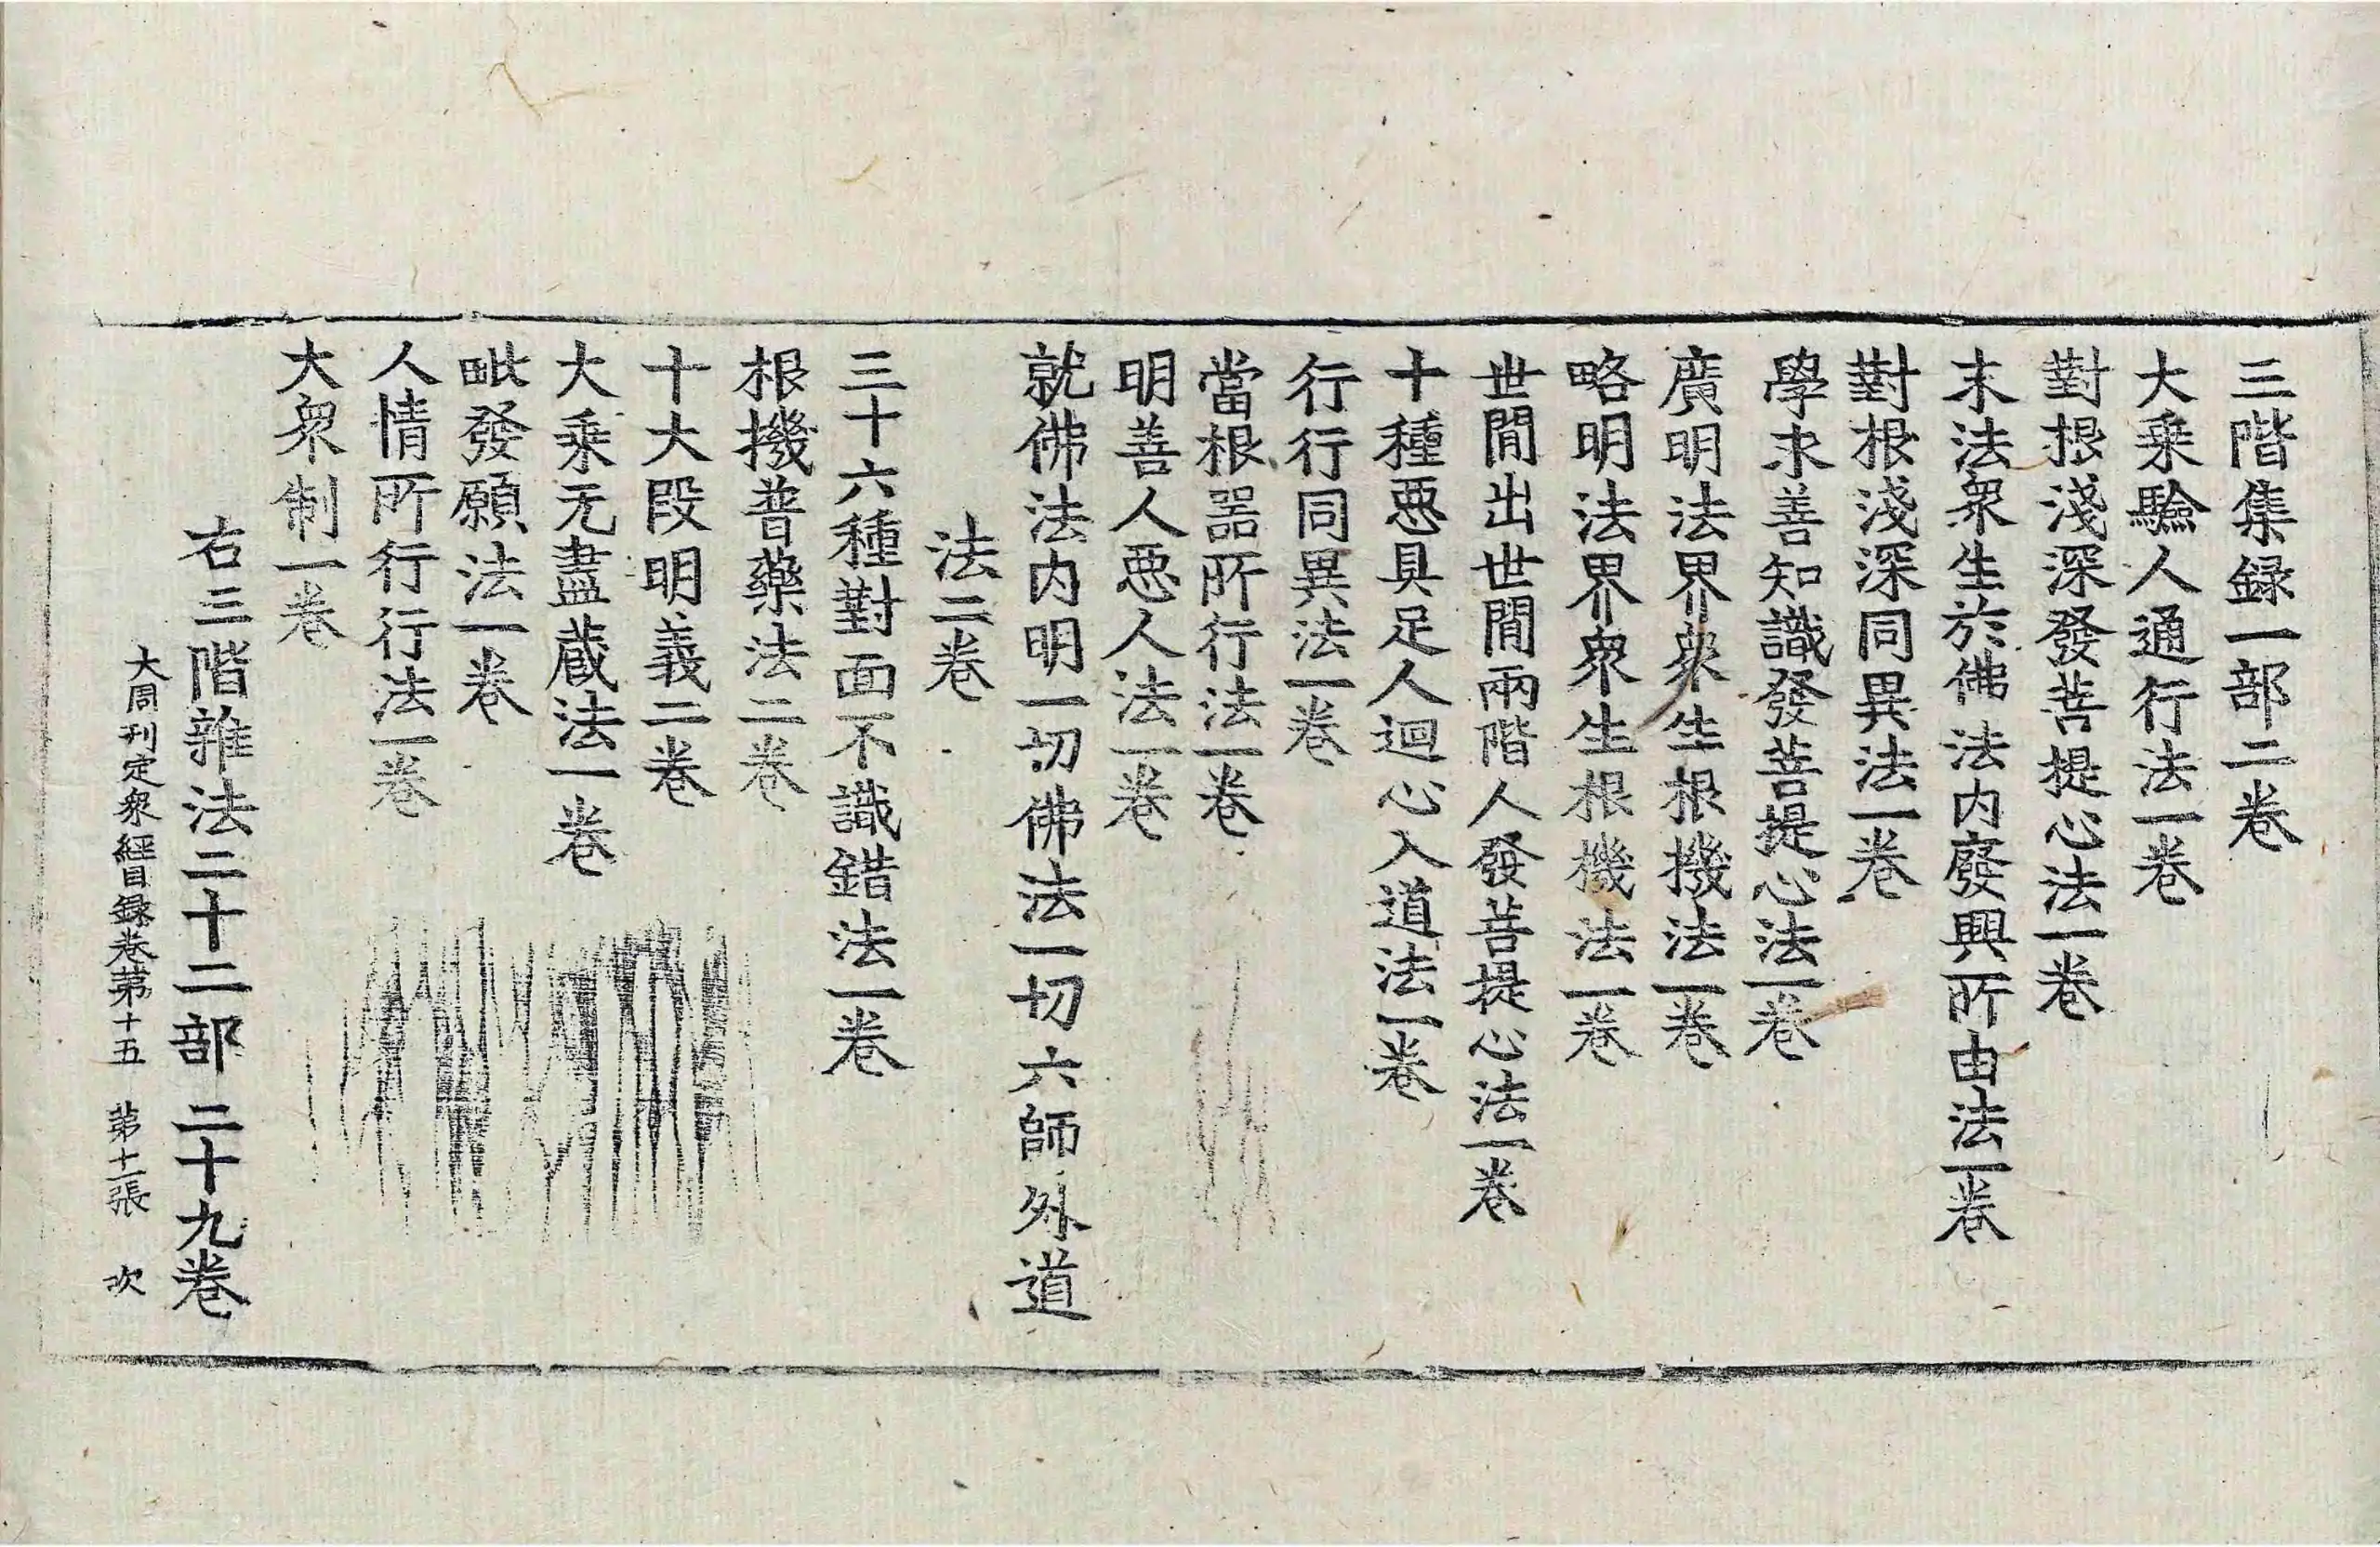 三階集録一部二卷
大乗驗人通行法一卷
對根淺深發菩提心法一卷
末法衆生於佛法内廢興所由法一卷
對根淺深同異法一卷
學求善知識發菩提心法一卷
廣明法界衆生根機法一卷
略明法界衆生根機法一卷
世間出世間兩階人發菩提心法一卷
十種惡具足人迴心入道法一卷
行行同異法一卷
當根器所行法一卷
明善人惡人法一卷
就佛法内明一切佛法一切六師外道
法二卷
三十六種對面不識錯法一卷
根機普藥法二卷
十大段明義二卷
大乗无盡蔵法一卷
毗發願法一卷
人情所行行法一卷
大衆制一卷
右三階雜法二十二部 二十九卷
大周刊定衆經目録卷苐十五 苐十二張 次